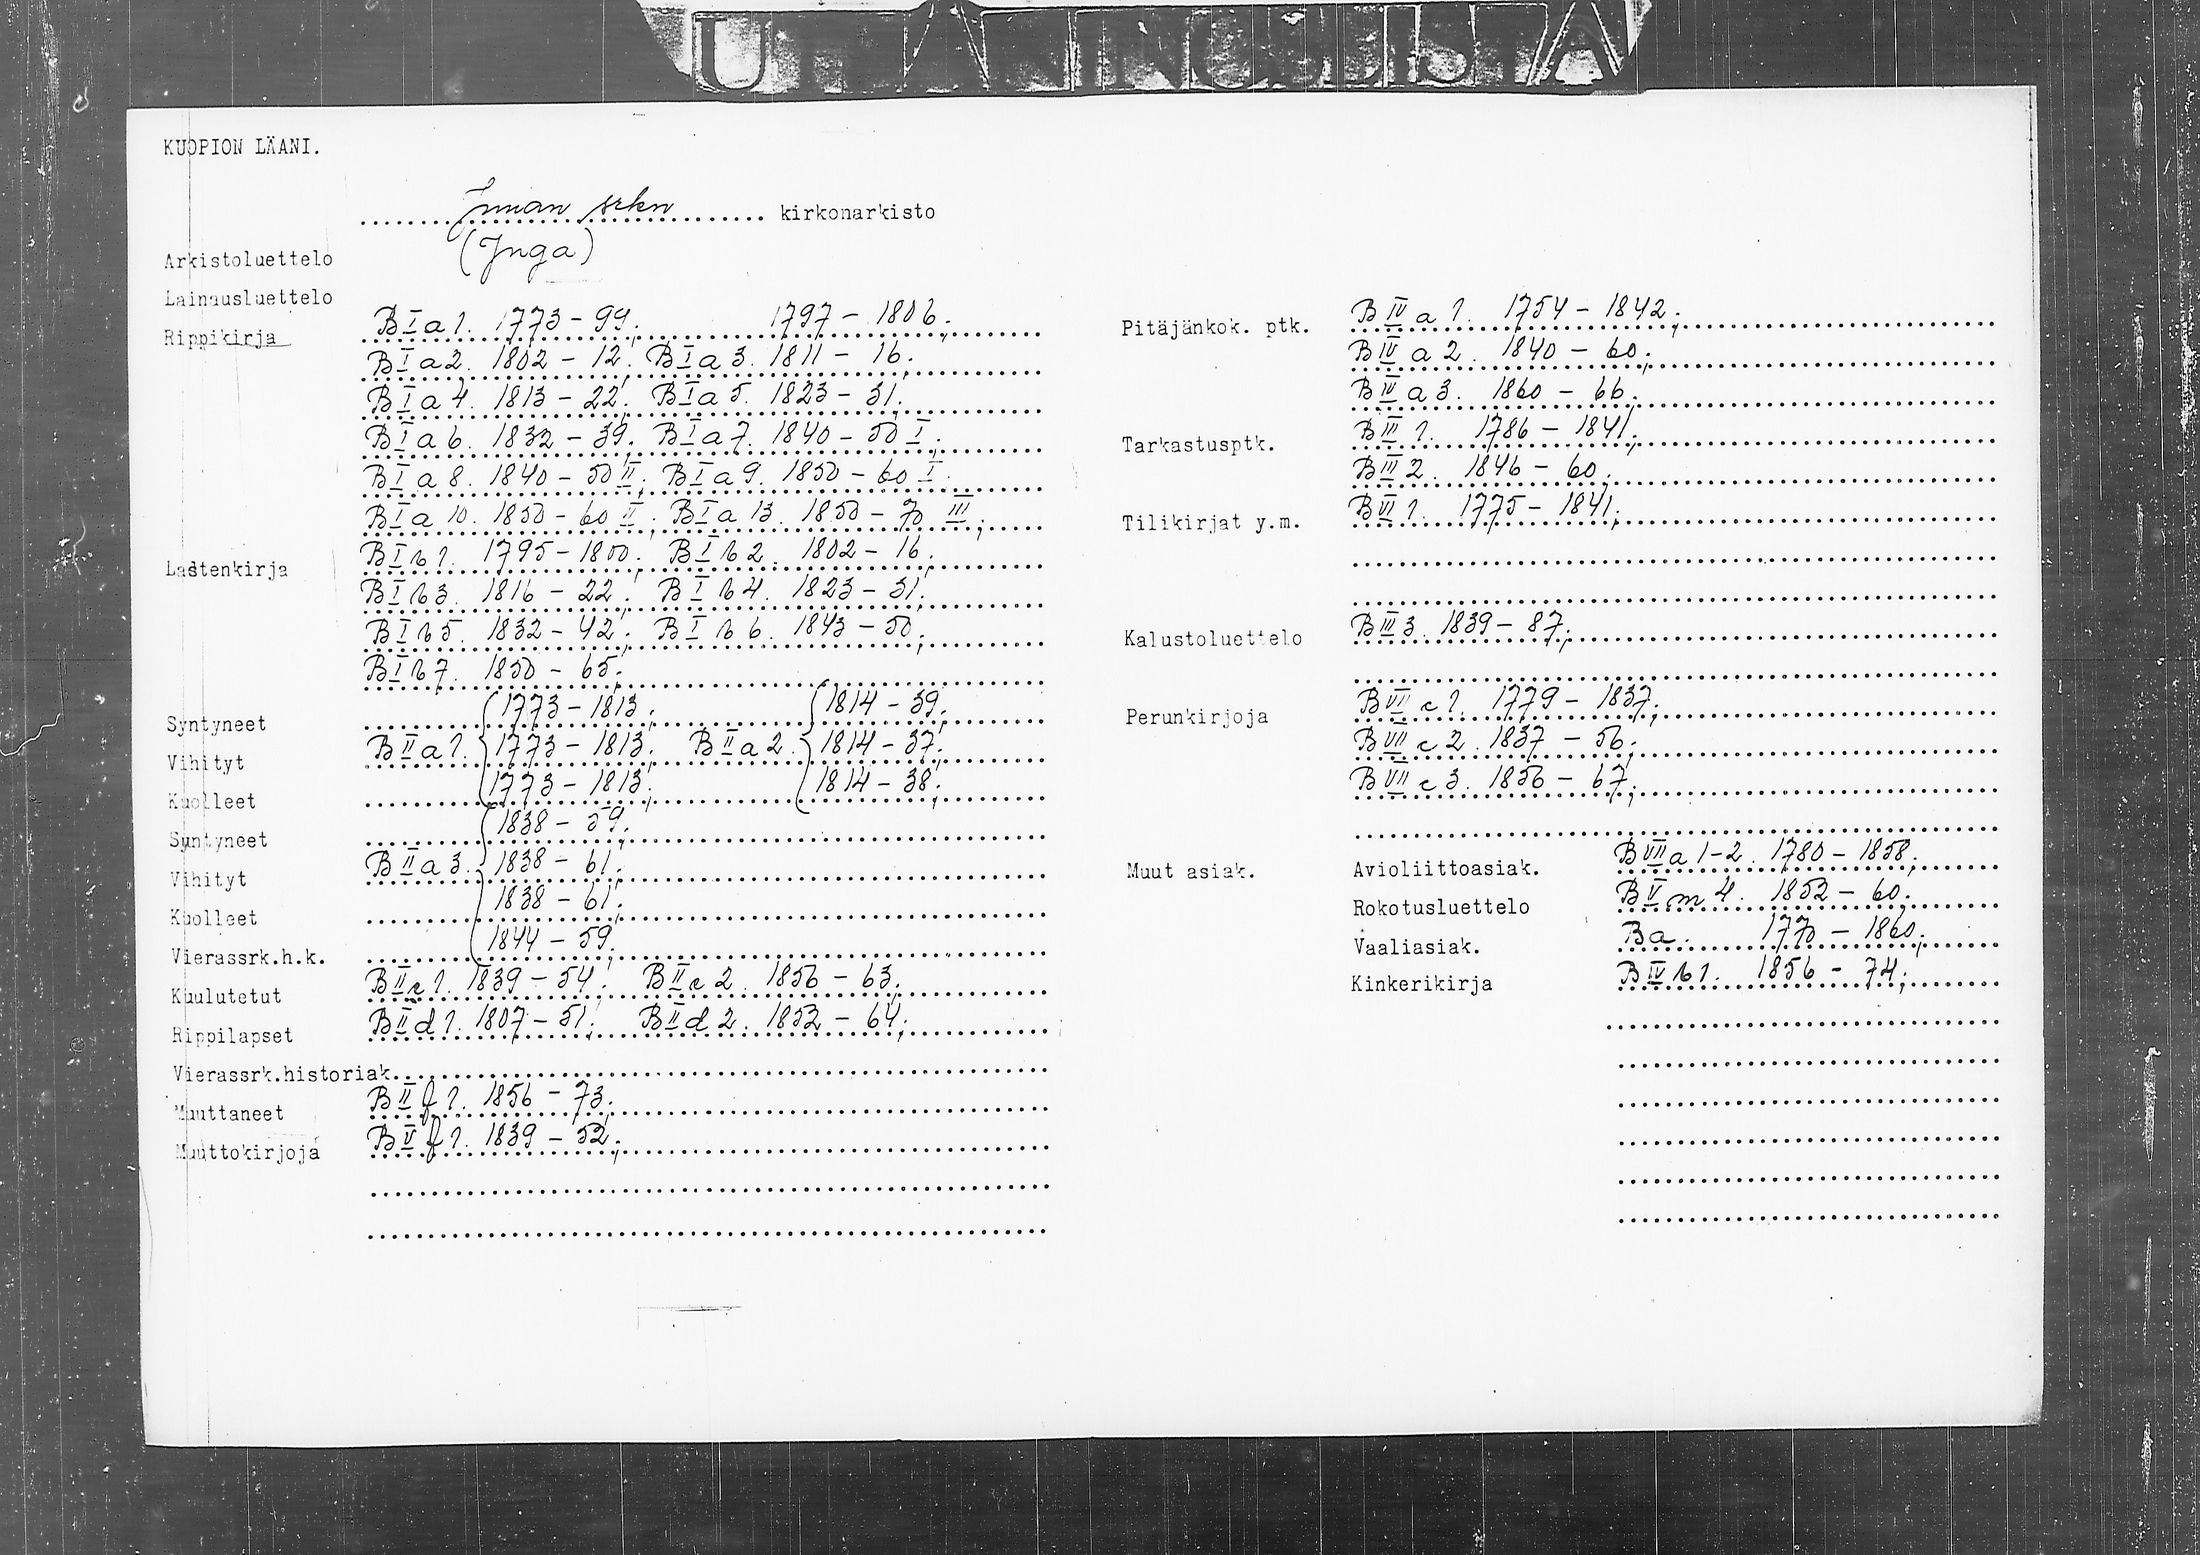 KUOPION LÄÄNI.
Juuan srkn kirkonarkisto
(Juga)
Arkistoluettelo
Lainausluettelo
Rippikirja B I a 1. 1773-99. 1797-1806.
B I a 2. 1802-12; B I a 3. 1811-16;
B I a 4. 1813-22; B I a 5. 1823-31;
B I a 6. 1832-39; B I a 7. 1840-50 I;
B I a 8. 1840-50 II; B I a 9. 1850-60 I.
B I a 10. 1850-60 II; B I a 13. 1850-70 III;
Lastenkirja B I b 1. 1795-1800; B I b 2. 1802-16;
B I b 3. 1816-22; B I b 4. 1823-31;
B I b 5. 1832-42; B I b 6. 1843-50;
B I b 7. 1850-65;
Syntyneet 1773-1813; 1814-39;
Vihityt B II a 1. 1773-1813; B II a 2. 1814-37;
Kuolleet 1773-1813; 1814-38;
Syntyneet 1838-59;
Vihityt B II a 3. 1838-61;
Kuolleet 1838-61;
Vierassrk.h.k. 1844-59;
Kuulutetut B II c 1. 1839-54; B II c 2. 1856-63;
Rippilapset B II d 1. 1807-51; B II d 2. 1852-64;
Vierassrk.historiak.
Muuttaneet B II f 1. 1856-73;
Muuttokirjoja B V f 1. 1839-52;
Pitäjänkok. ptk. B IV a 1. 1754-1842;
B IV a 2. 1840-60;
B IV a 3. 1860-66;
Tarkastusptk. B III 1. 1786-1841;
B III 2. 1846-60;
Tilikirjat y.m. B VI 1. 1775-1841;
Kalustoluettelo B III 3. 1839-87;
Perunkirjoja B VII c 1. 1779-1837;
B VII c 2. 1837-56;
B VII c 3. 1856-67;
Muut asiak. Avioliittoasiak. B VII a 1-2. 1780-1858;
Rokotusluettelo B V m 4. 1852-60;
Vaaliasiak. Ba. 1770-1860;
Kinkerikirja B IV b 1. 1856-74;